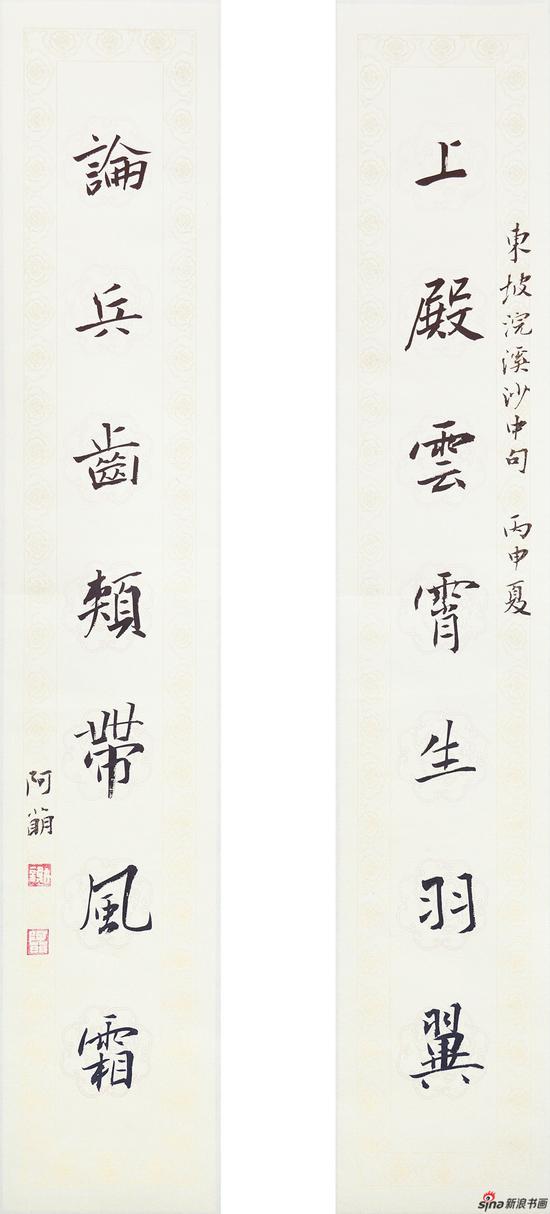 上殿雲霄生羽翼
東坡浣溪沙中句 丙申夏
論兵齒頰帶風霜
阿萠
sina新浪书画